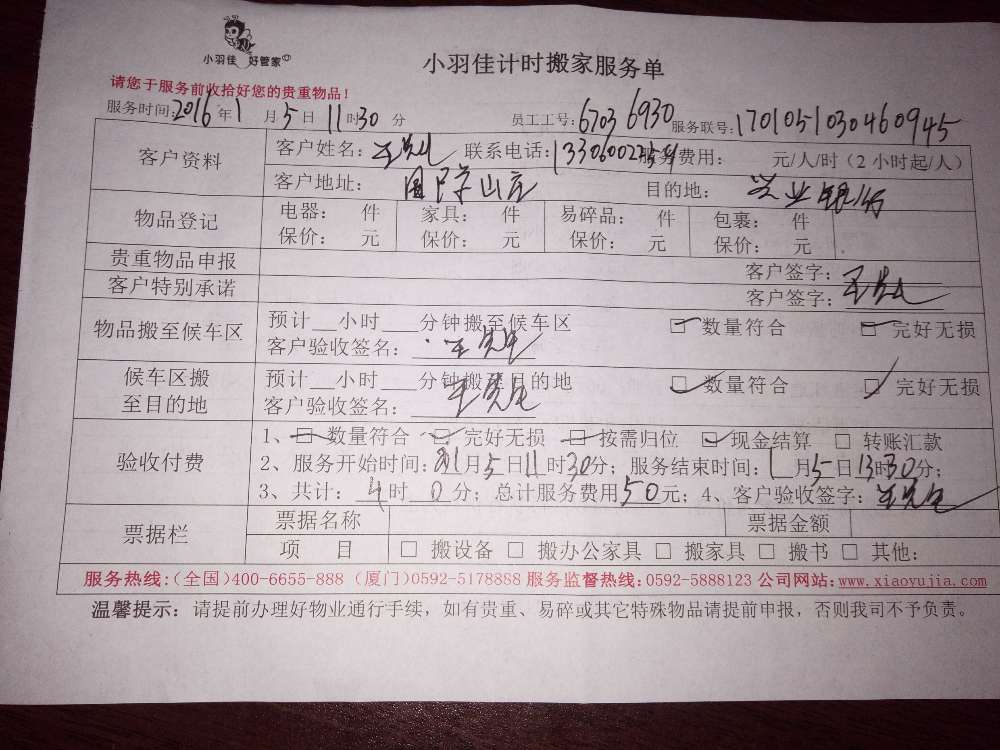 小羽佳 好管家
小羽佳计时搬家服务单
请您于服务前收拾好您的贵重物品！
服务时间：2016年1月5日11时30分 员工工号：6703 6930 服务联号：1701051030460945
客户资料 客户姓名：王先生 联系电话： 服务费用： 元/人/时（2小时起/人）
客户地址： 山庄 目的地：兴业银行
物品登记 电器： 件 家具： 件 易碎品： 件 包裹： 件
保价： 元 保价： 元 保价： 元 保价： 元
贵重物品申报 客户签字：王先生
客户特别承诺 客户签字：
物品搬至候车区 预计__小时___分钟搬至候车区 ☑数量符合 ☑完好无损
客户验收签名：王先生
候车区搬至目的地 预计__小时___分钟搬至目的地 ☑数量符合 ☑完好无损
客户验收签名：王先生
验收付费 1、☑数量符合 ☑完好无损 ☑按需归位 ☑现金结算 □转账汇款
2、服务开始时间：1月5日11时30分；服务结束时间：1月5日13时30分；
3、共计：4时0分；总计服务费用50元；4、客户验收签字：王先生
票据栏 票据名称 票据金额
项 目 □搬设备 □搬办公家具 □搬家具 □搬书 □其他：
服务热线：（全国）400-6655-888（厦门）0592-5178888 服务监督热线：0592-5888123 公司网站：www.xiaoyujia.com
温馨提示：请提前办理好物业通行手续，如有贵重、易碎或其它特殊物品请提前申报，否则我司不予负责。